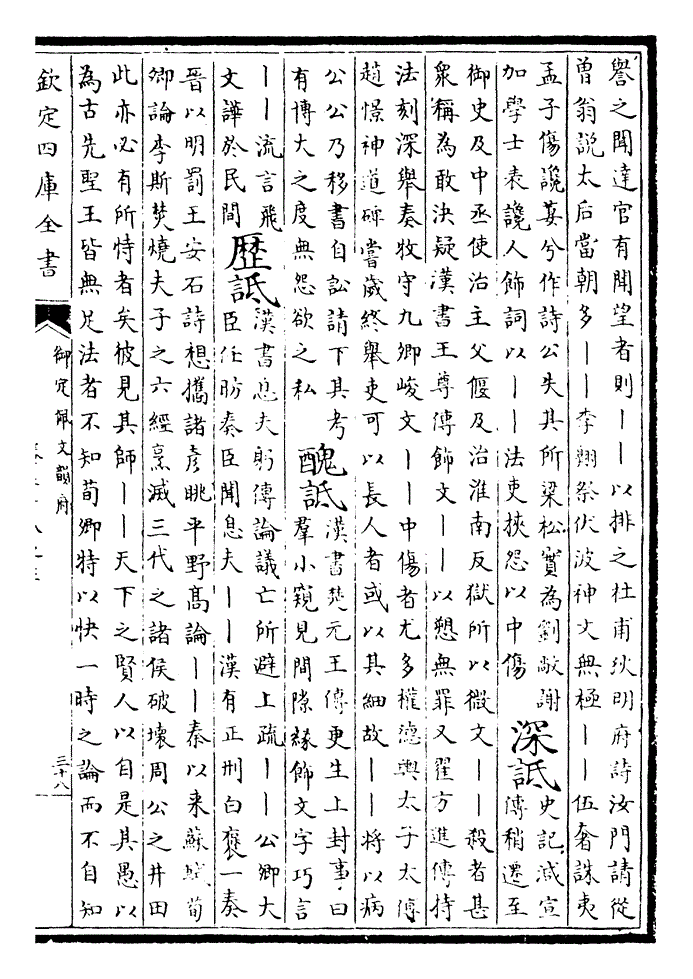 譽之聞達官有聞望者則丨丨以排之杜甫狄明府詩汝門請從
曾翁説太后當朝多丨丨李翺祭伏波神文無極丨丨伍奢誅夷
孟子傷讒萋兮作詩公失其所梁松實為劉敞謝
加學士表讒人飾詞以丨丨法吏挾怨以中傷
深詆
史記減宣
傳稍遷至
御史及中丞使治主父偃及治淮南反獄所以微文丨丨殺者甚
衆稱為敢決疑漢書王尊傳飾文丨丨以愬無罪又翟方進傳持
法刻深舉奏牧守九卿峻文丨丨中傷者尤多權德輿太子太傅
趙憬神道碑嘗歲終舉吏可以長人者或以其細故丨丨將以病
公公乃移書自訟請下其考
有博大之度無怨欲之私
醜詆
漢書楚元王傳更生上封事曰
羣小窺見間隙緣飾文字巧言
丨丨流言飛
文譁於民間
歴詆
漢書息夫躬傳論議亡所避上疏丨丨公卿大
臣任昉奏臣聞息夫丨丨漢有正刑白褒一奏
晉以明罰王安石詩想攜諸彦眺平野髙論丨丨秦以来蘇軾荀
卿論李斯焚燒夫子之六經烹滅三代之諸侯破壞周公之井田
此亦必有所恃者矣彼見其師丨丨天下之賢人以自是其愚以
為古先聖王皆無足法者不知荀卿特以快一時之論而不自知
欽定四庫全書
御定佩文韻府
三十八